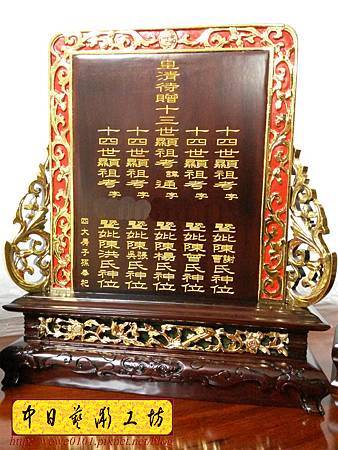 皇清待贈十三世顯祖考諱通字
十四世顯祖考字
十四世顯祖考字
十四世顯祖考字
十四世顯祖考字
暨妣陳謝曹氏神位
暨妣陳曾氏神位
暨妣陳楊氏神位
暨妣陳張吳氏神位
暨妣陳洪氏神位
四大房子孫奉祀
中日藝彫工坊